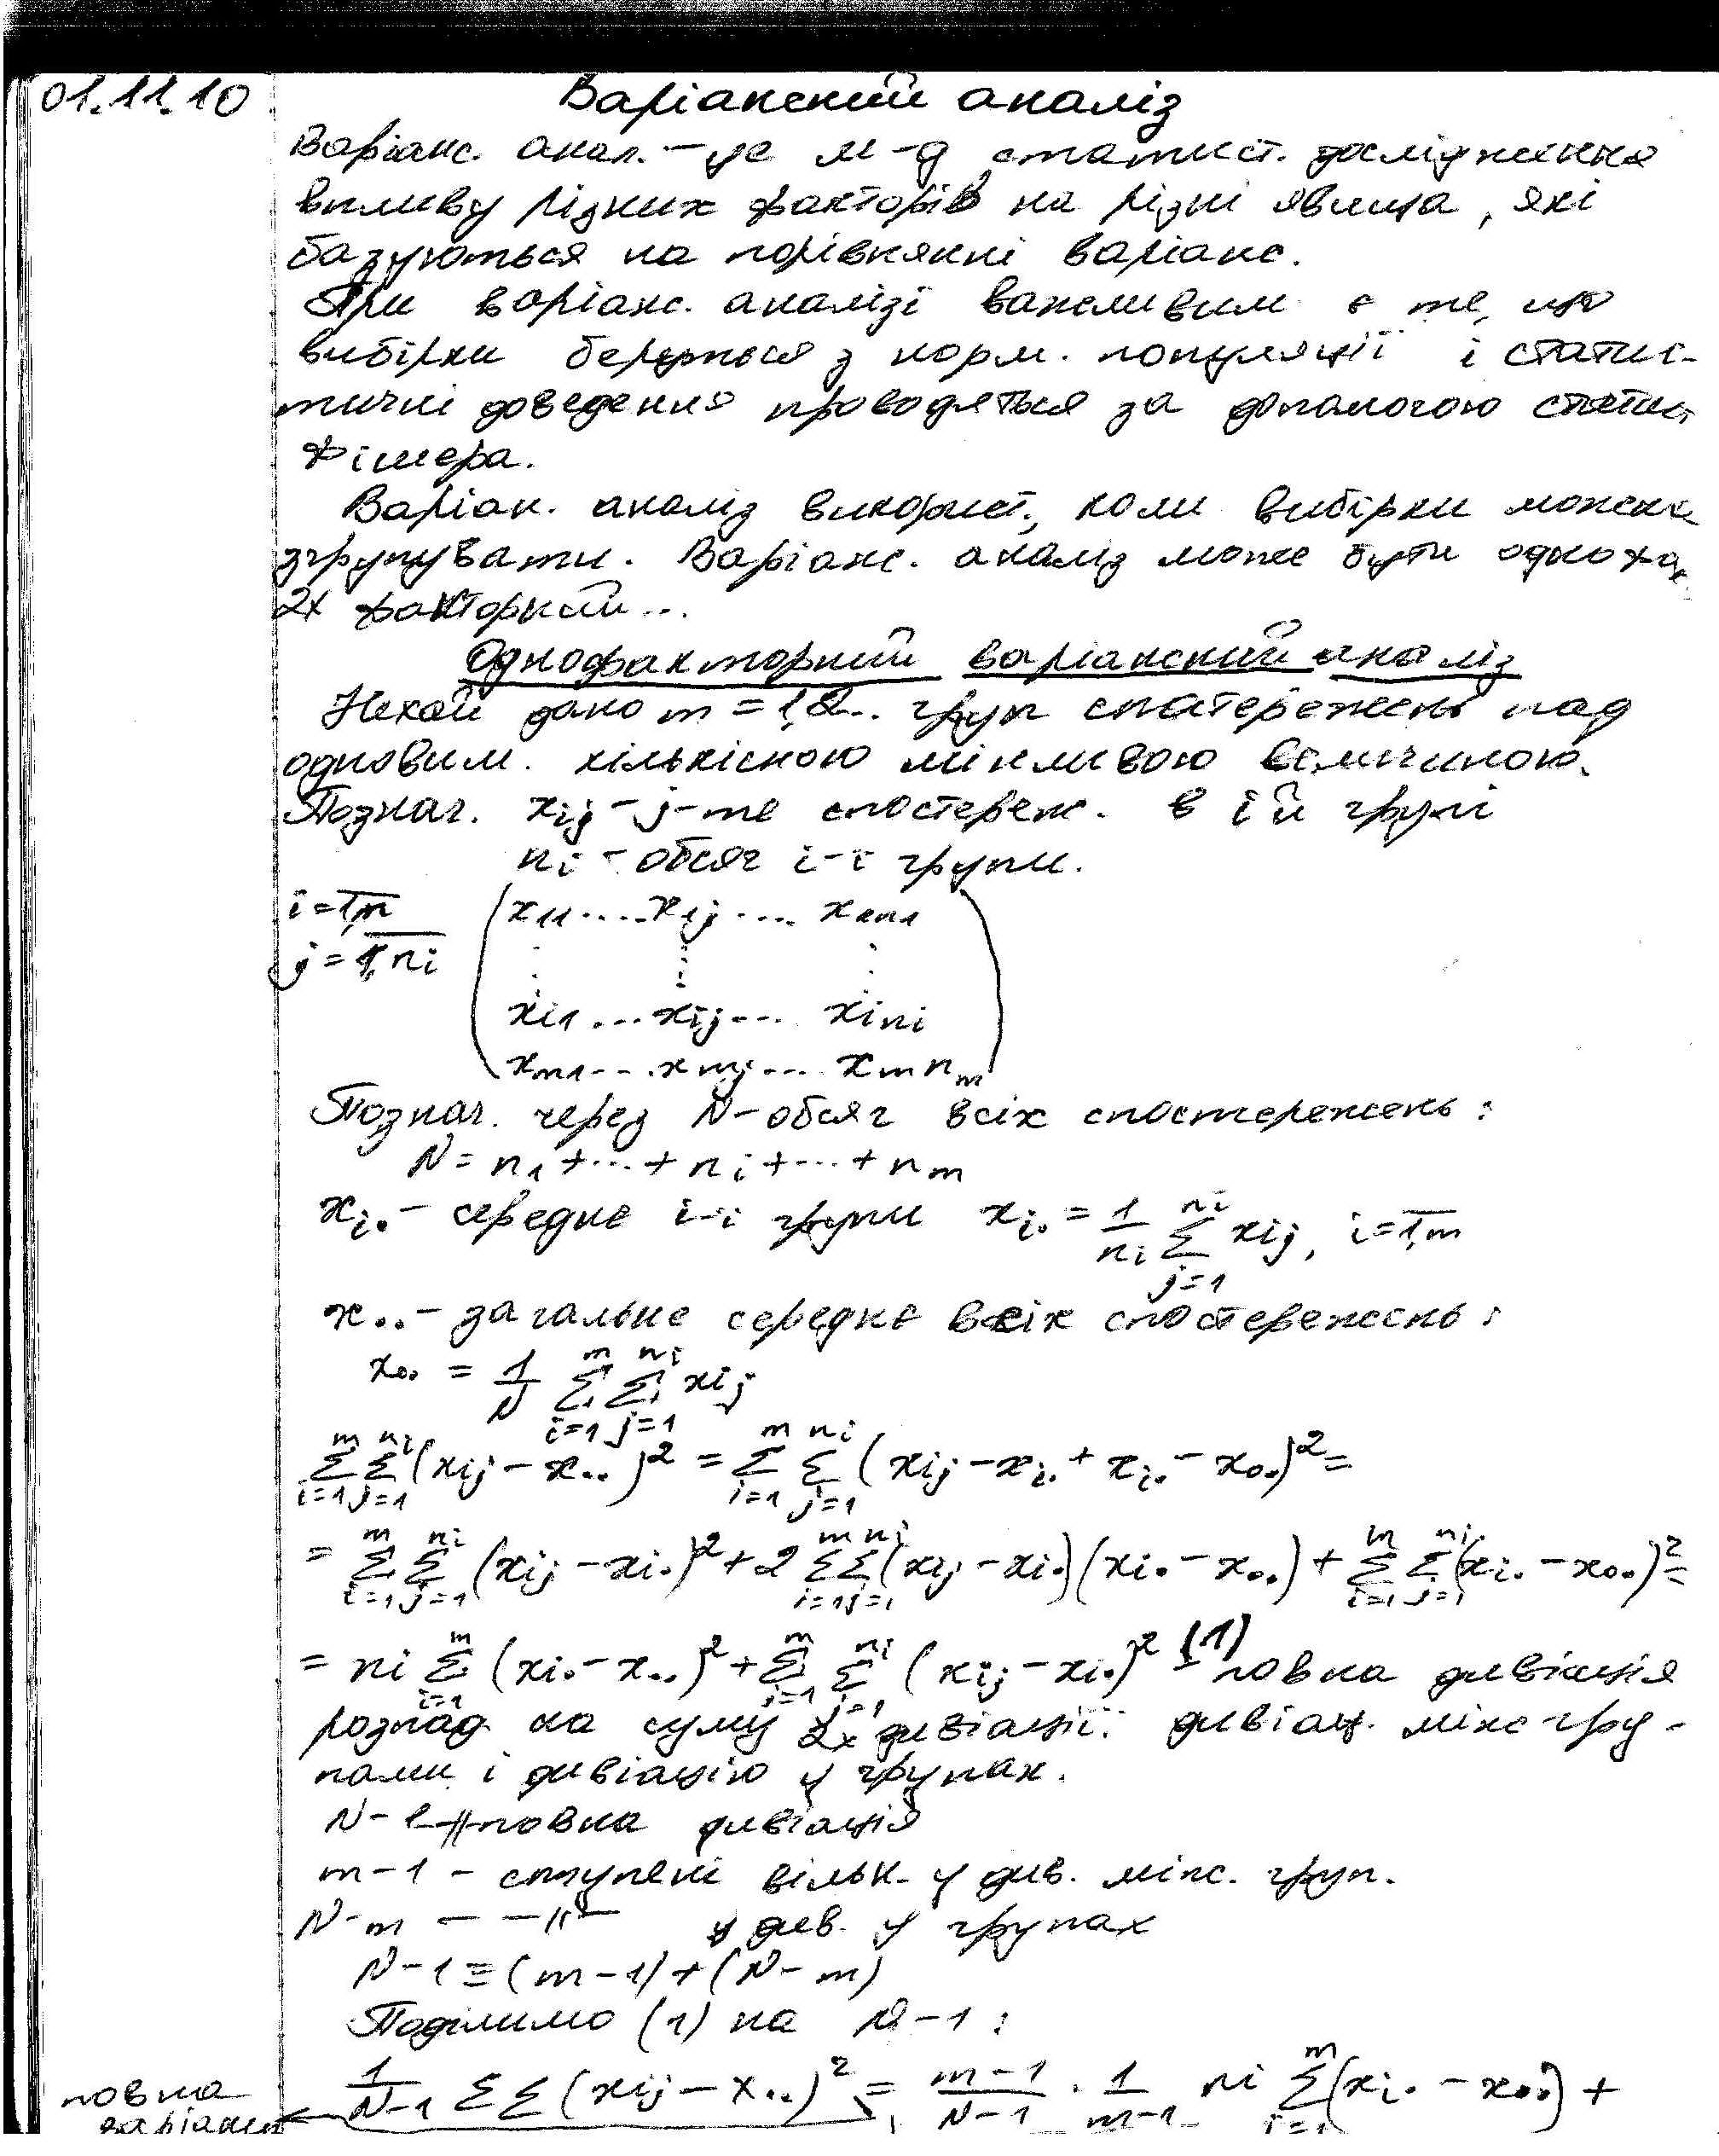 01.11.10
Варіансний аналіз
Варіанс. анал. – це м-д статист. дослідження
впливу різних факторів на різні явища, які
базуються на порівнянні варіанс.
При варіанс. аналізі важливим є те, що
вибірки беруться з норм. популяції і статис-
тичні доведення проводяться за допомогою статис.
Фішера.
Варіан. аналіз використ., коли вибірки можна
згрупувати. Варіанс. аналіз може бути одно
2х факторний...
Однофакторний варіансний аналіз
Нехай дано m = 1,2.. груп спостережень над
одновим. кількісною мінливою величиною.
Познач. xij – j-те спостереж. в i й групі
ni – обсяг i-ї групи.
i = 1,m
j = 1,ni
x11 .... x1j .... x1n1
xi1 ... xij ... xini
xm1 ... xmj ... xmnm
Познач. через N – обсяг всіх спостережень:
N = n1 + ... + ni + ... + nm
xi. – середнє i-ї групи xi. = 1/ni Σ(j=1..ni) xij, i = 1,m
x.. – загальне середнє всіх спостережень:
x.. = 1/N Σ(i=1..m) Σ(j=1..ni) xij
Σ(i=1..m) Σ(j=1..ni) (xij – x..)² = Σ(i=1..m) Σ(j=1..ni) (xij – xi. + xi. – x..)² =
= Σ(i=1..m) Σ(j=1..ni) (xij – xi.)² + 2 Σ(i=1..m) Σ(j=1..ni) (xij – xi.)(xi. – x..) + Σ(i=1..m) Σ(j=1..ni) (xi. – x..)² =
= ni Σ(i=1..m) (xi. – x..)² + Σ(i=1..m) Σ(j=1..ni) (xij – xi.)² (1) – повна девіація
розпад. на суму 2х девіацій: девіац. між гру-
пами і девіацію у групах.
N – повна девіація
m – 1 – ступені вільн. у дев. між. груп.
N – m – –"– у дев. у групах
N – 1 = (m – 1) + (N – m)
Поділимо (1) на N – 1:
1/(N–1) ΣΣ (xij – x..)² = (m–1)/(N–1) · 1/(m–1) ni Σ(i=1..m) (xi. – x..) +
повна
варіанс